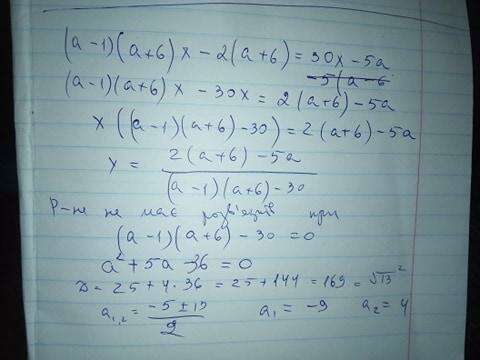 (a-1)(a+6)x - 2(a+6) = 30x - 5a
(a-1)(a+6)x - 30x = 2(a+6) - 5a
x((a-1)(a+6) - 30) = 2(a+6) - 5a
x = 2(a+6) - 5a / (a-1)(a+6) - 30
Р-не не має розв'язків при
(a-1)(a+6) - 30 = 0
a² + 5a - 36 = 0
D = 25 + 4·36 = 25 + 144 = 169 = √13²
a₁,₂ = -5 ± 13 / 2 a₁ = -9 a₂ = 4